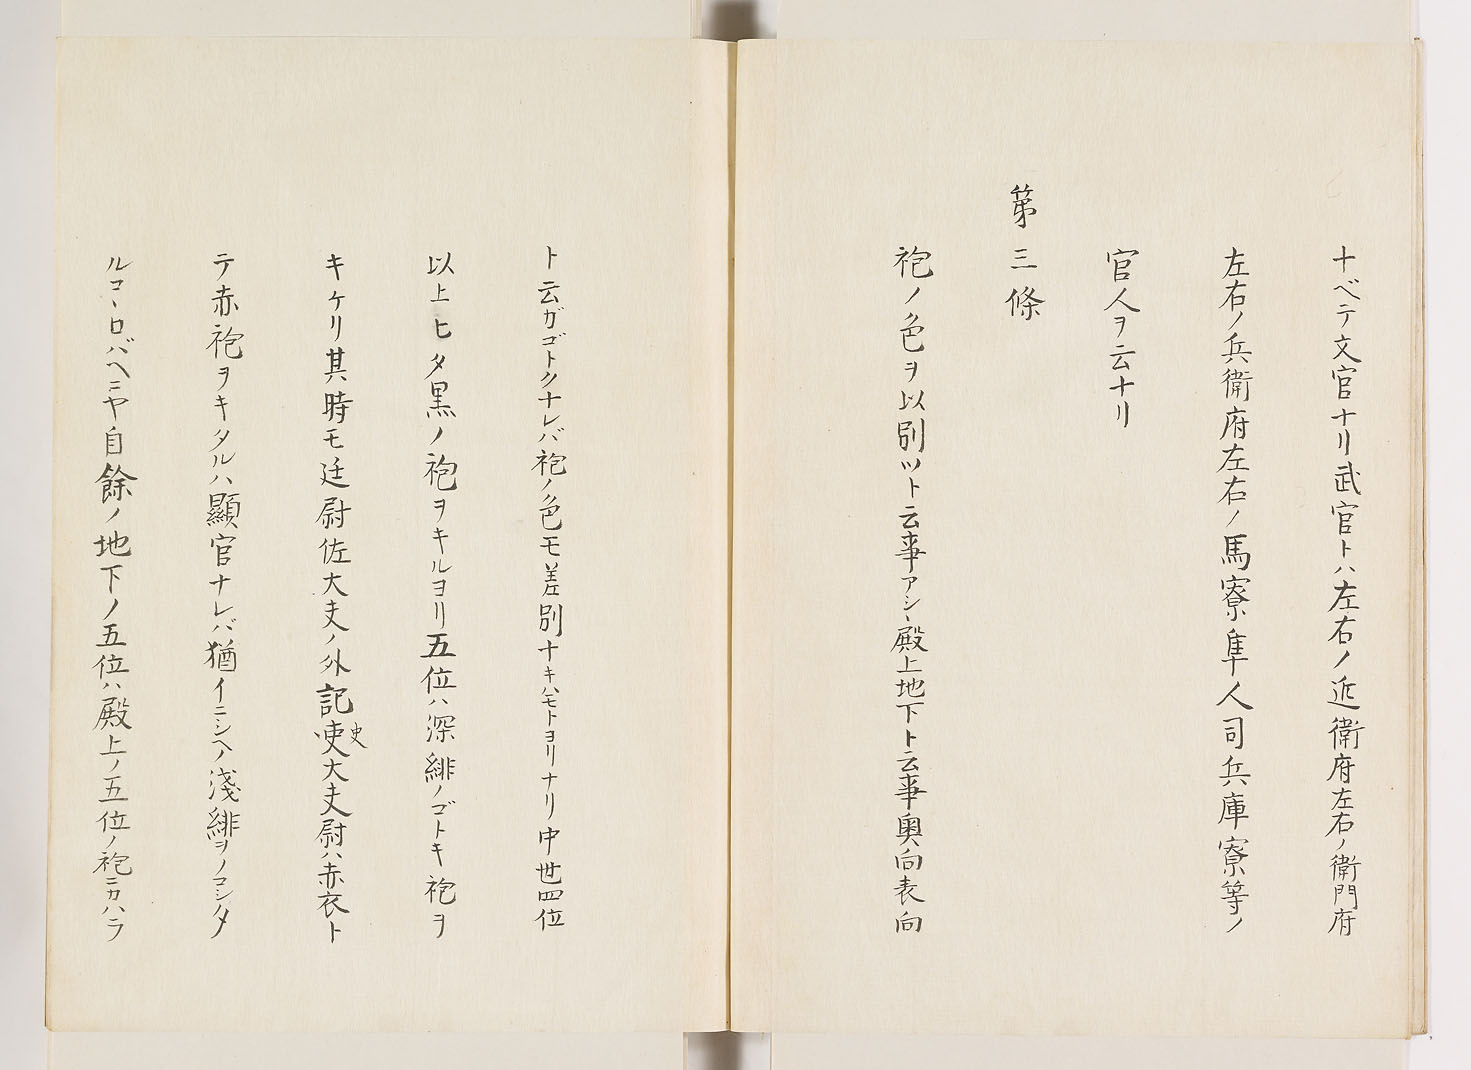 ナベテ文官ナリ武官トハ左右ノ近衛府左右ノ衛門府
左右ノ兵衛府左右ノ馬寮隼人司兵庫寮等ノ
官人ヲ云ナリ
第三條
袍ノ色ヲ以別ツト云事アシヽ殿上地下ト云事奥向表向
ト云ガゴトクナレバ袍ノ色モ差別ナキハモトヨリナリ中世四位
以上ヒタ黒ノ袍ヲキルヨリ五位ハ深緋ノゴトキ袍ヲ
キケリ其時モ廷尉佐大夫ノ外記吏大夫尉ハ赤衣ト
史
テ赤袍ヲキタルハ顯官ナレバ猶イニシヘノ淺緋ヲノコシタ
ルコヽロバヘニヤ自餘ノ地下ノ五位ハ殿上ノ五位ノ袍ニカハラ